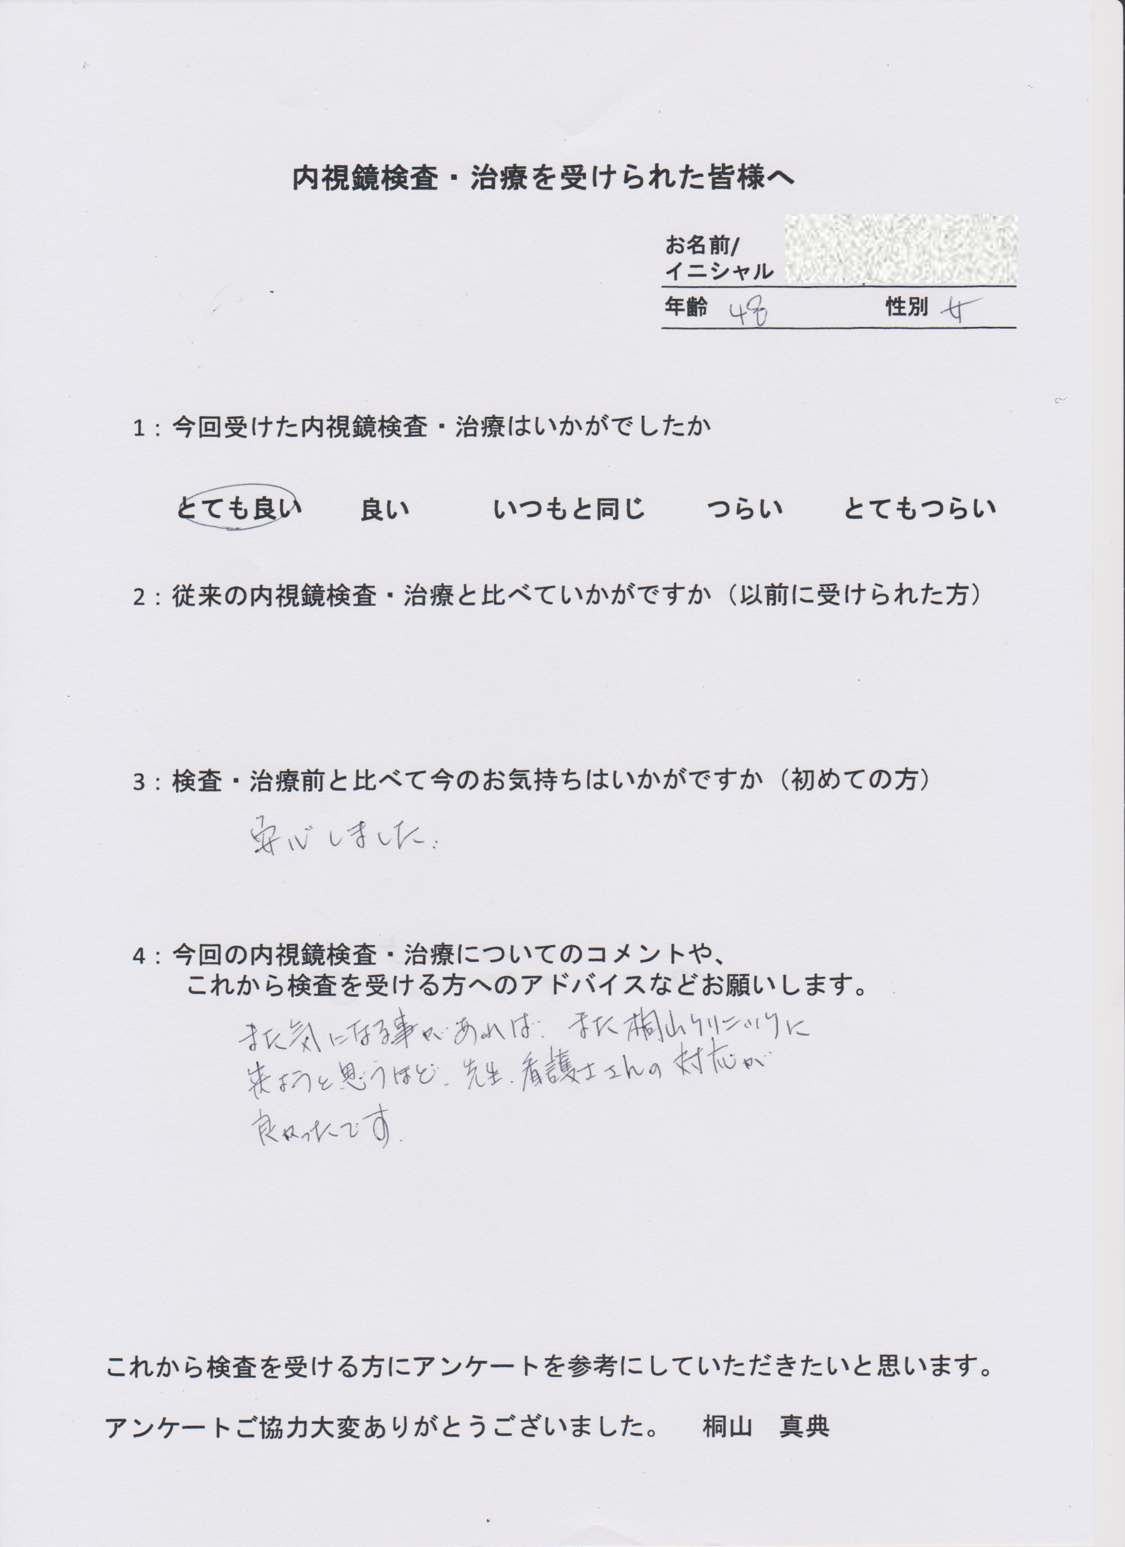 内視鏡検査・治療を受けられた皆様へ
お名前/
イニシャル
年齢 48 性別 女
1：今回受けた内視鏡検査・治療はいかがでしたか
とても良い 良い いつもと同じ つらい とてもつらい
2：従来の内視鏡検査・治療と比べていかがですか（以前に受けられた方）
3：検査・治療前と比べて今のお気持ちはいかがですか（初めての方）
安心しました.
4：今回の内視鏡検査・治療についてのコメントや、
これから検査を受ける方へのアドバイスなどお願いします。
また気になる事があれば、また桐山クリニックに
来ようと思うほど、先生、看護士さんの対応が
良かったです.
これから検査を受ける方にアンケートを参考にしていただきたいと思います。
アンケートご協力大変ありがとうございました。 桐山 真典